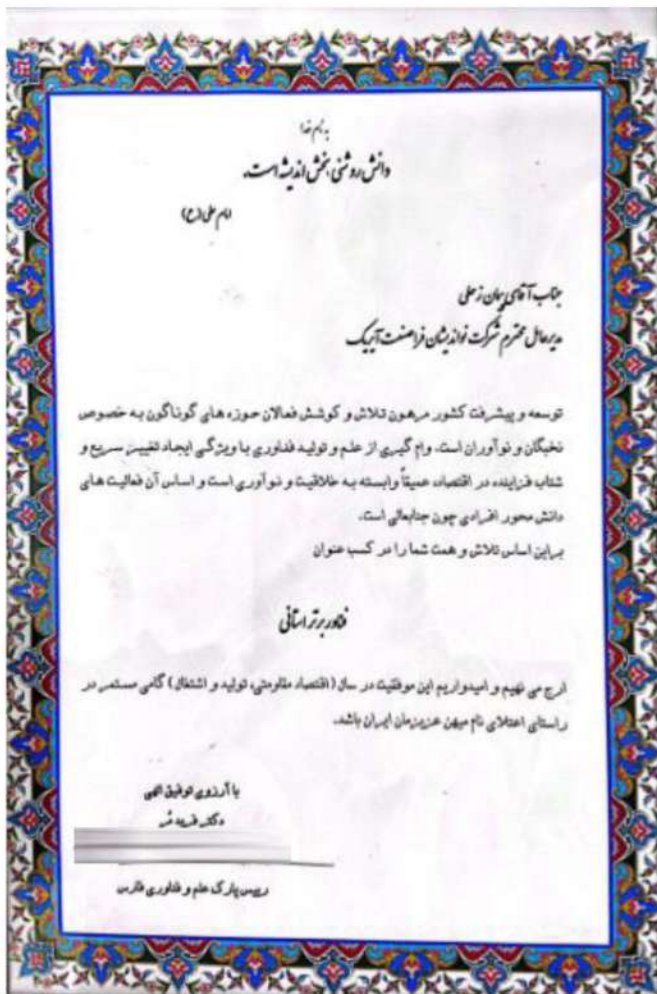 به نام خدا
دانش روشنی بخش اندیشه است.
امام علی (ع)
جناب آقای پیمان زحلی
مدیرعامل محترم شرکت نواندیشان فراصنعت آیریک
توسعه و پیشرفت کشور مرهون تلاش و کوشش فعالان حوزه های گوناگون به خصوص
نخبگان و نوآوران است. وام گیری از علم و تولید فناوری با ویژگی ایجاد تغییر سریع و
شتاب فزاینده در اقتصاد، عمیقاً وابسته به خلاقیت و نوآوری است و اساس آن فعالیت های
دانش محور افرادی چون جنابعالی است.
براین اساس تلاش و همت شما را در کسب عنوان
فناور برتر استانی
ارج می نهیم و امیدواریم این موفقیت در سال (اقتصاد مقاومتی، تولید و اشتغال) گامی مستمر در
راستای اعتلای نام میهن عزیزمان ایران باشد.
با آرزوی توفیق الهی
دکتر فریده
رییس پارک علم و فناوری فارس